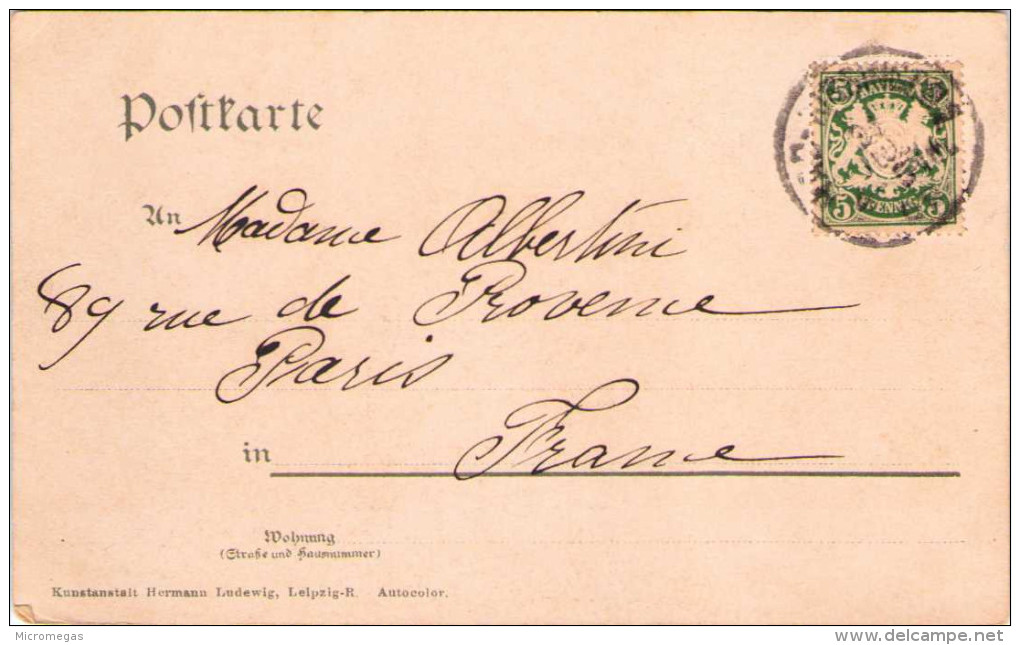 Postkarte
BAYERN
5 5
5 PFENNIG 5
An Madame Albertini
89 rue de Provence
Paris
in France
Wohnung
(Straße und Hausnummer)
Kunstanstalt Hermann Ludewig, Leipzig-R. Autocolor.
Micromegas
www.delcampe.net